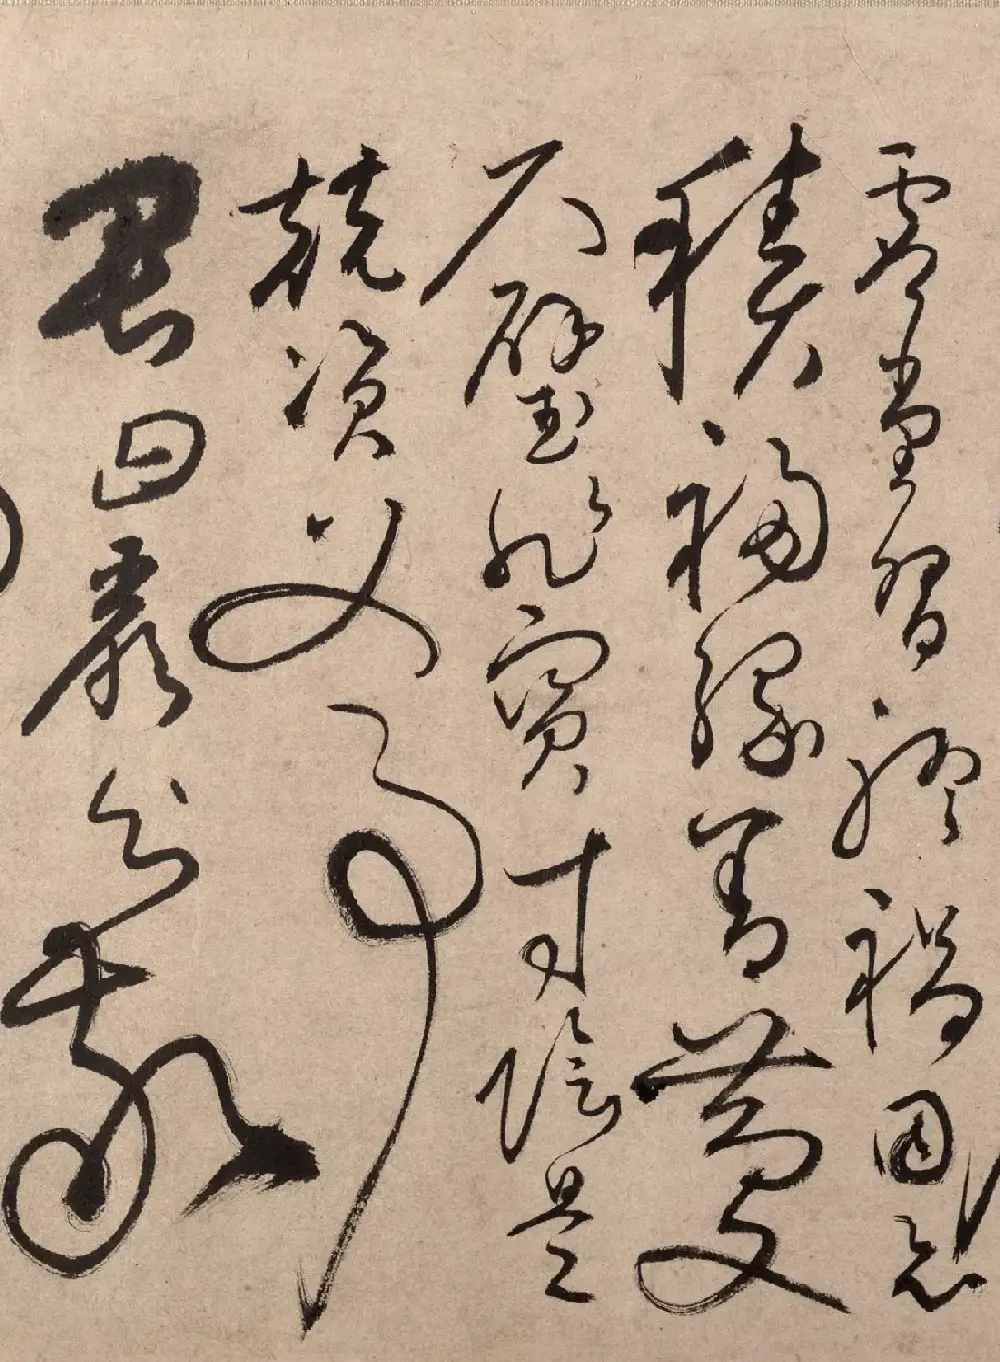 虛堂習聽禍因惡
積福緣善慶
尺璧非寶寸陰是
競資父事
君曰嚴與敬